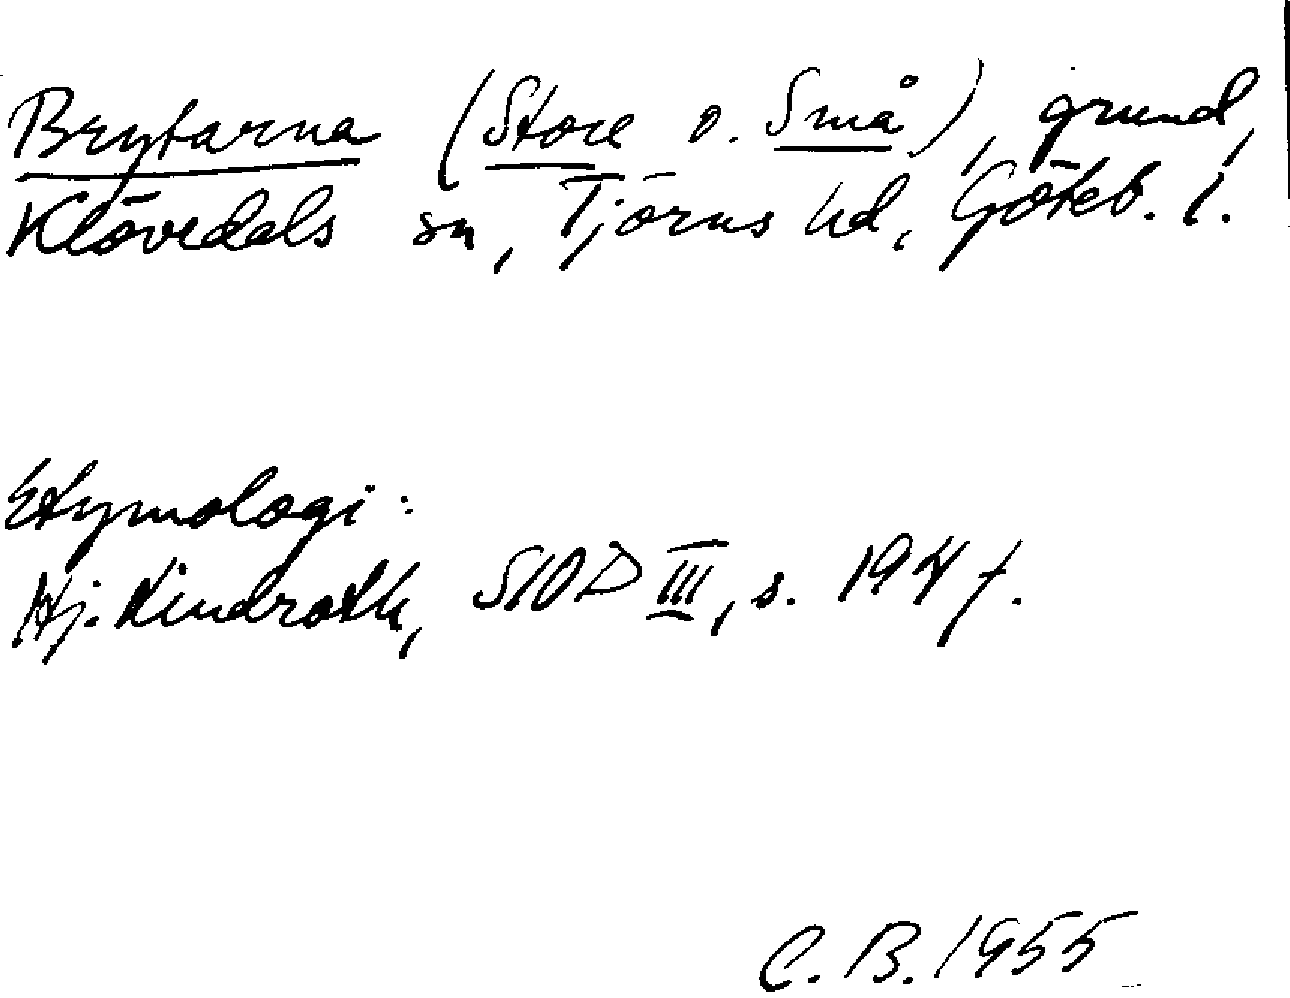 Brytarna (Store o. Små), grund,
Klövedals sn, Tjörns hd, Göteb. l.
Etymologi:
Hj. Lindroth, SIOD III, s. 194 f.
C. B. 1955